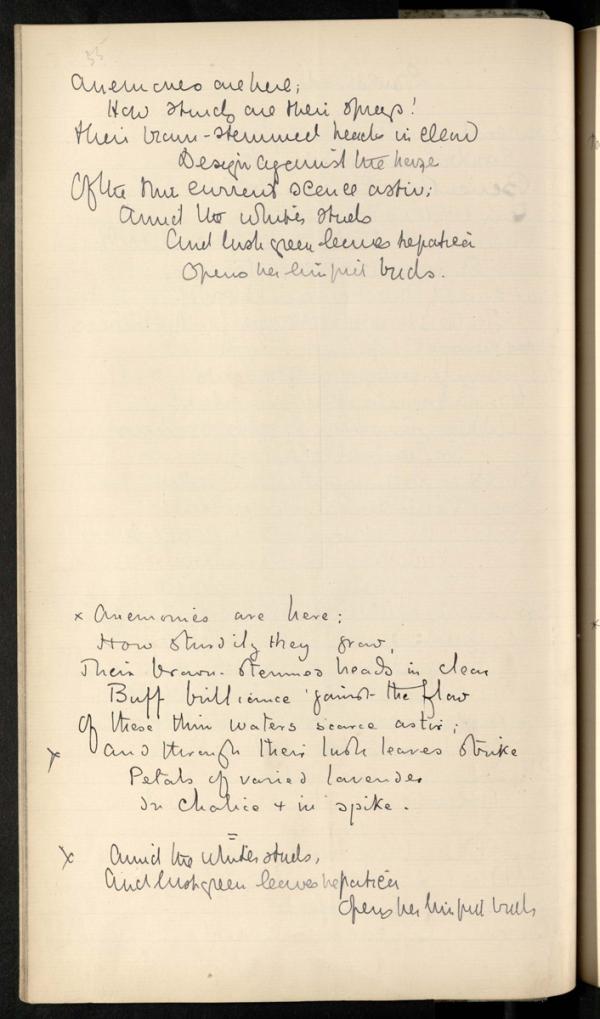 35
Anemones are here;
How sturdy are their sprays!
Their brown-stemmed heads in clear
Design against the haze
Of the thin current scarce astir;
Amid the whiter studs
And lush green leaves hepatica
Opens her limpid buds.
x Anemonies are here:
How sturdily they grow,
Their brown-stemmed heads in clear
Buff brilliance 'gainst the flow
Of these thin waters scarce astir;
x And through their lush leaves strike
Petals of varied lavender
In chalice + in spike.
=
x Amid the whiter studs,
And lush green leaves hepatica
Opens her limpid buds